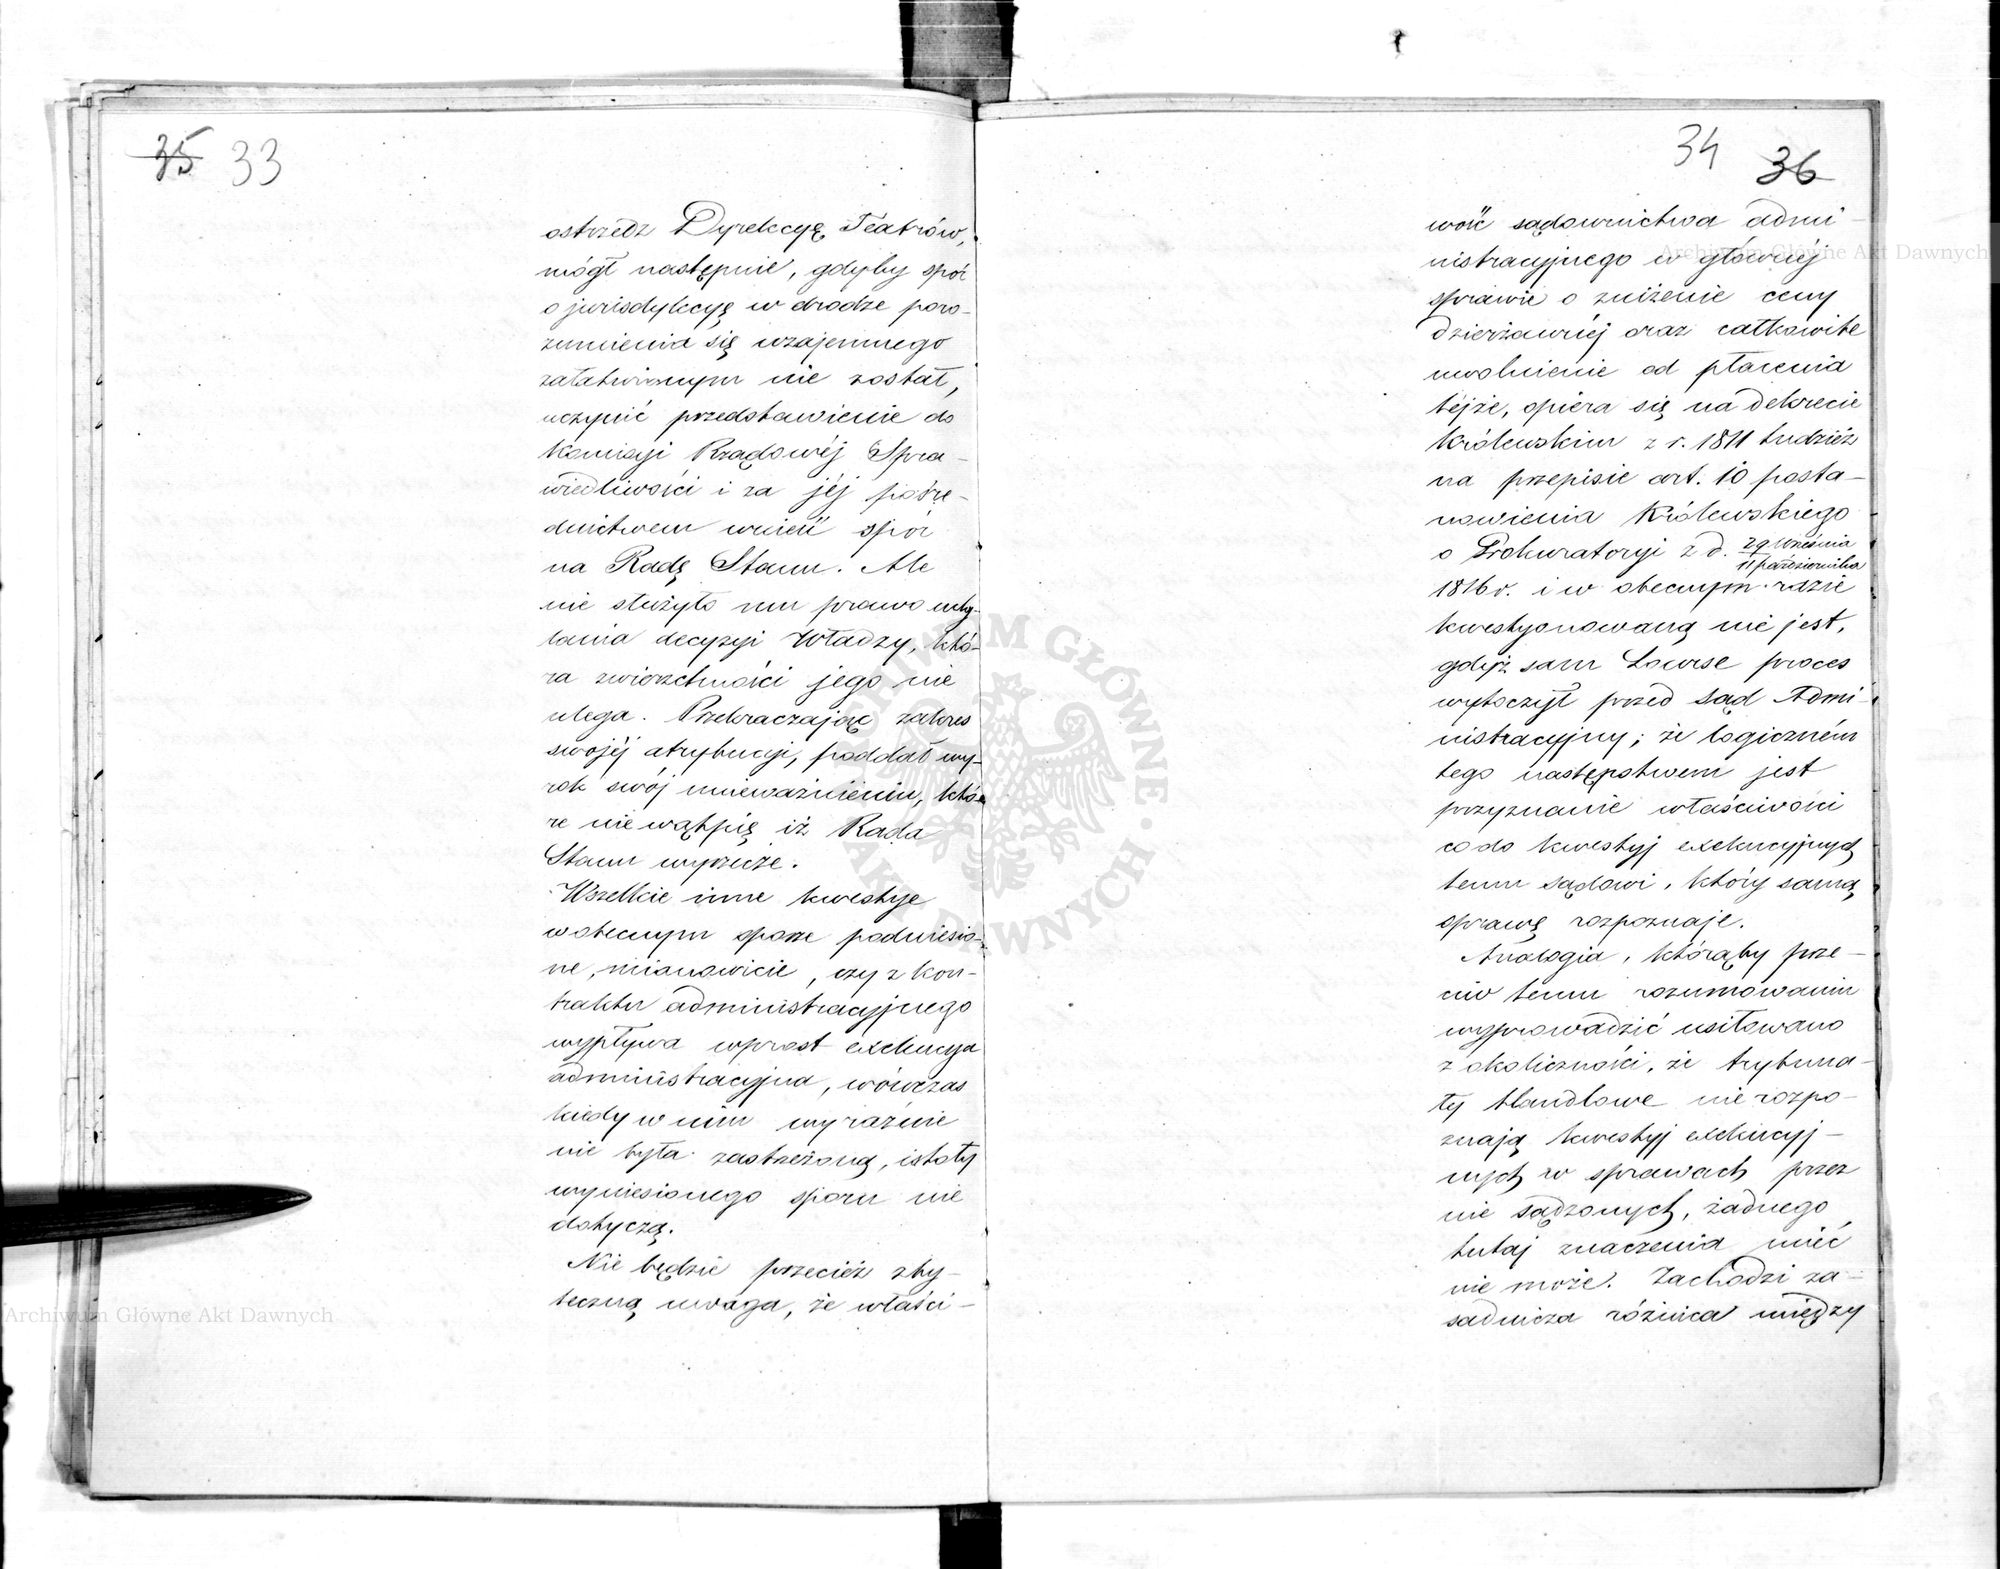 35 33
ostrzedz Dyrekcyę Teatrów,
mógł następnie, gdyby spór
o jurisdykcyę w drodze poro-
zumienia się wzajemnego
załatwionym nie został,
uczynić przedstawienie do
Komisyi Rządowéj Spra-
wiedliwości i za jéj pośre-
dnictwem wnieść spór
na Radę Stanu. Ale
nie służyło mu prawo uchy-
lania decyzyi Władzy, któ-
ra zwierzchności jego nie
ulega. Przekraczając zakres
swojéj atrybucyi, poddał wy-
rok swój unieważnieniu, któ-
re nie wątpię iż Rada
Stanu wyrzecze.
Wszelkie inne kwestye
w obecnym sporze podniesio-
ne, mianowicie, czy z kon-
traktu administracyjnego
wypływa wprost exekucya
administracyjna, wówczas
kiedy w nim wyraźnie
nie była zastrzeżoną, istoty
wyniesionego sporu nie
dotyczą.
Nie będzie przecież zby-
teczną uwaga, że właści-
34 36
wość sądownictwa admi-
nistracyjnego w głównéj
sprawie o zniżenie ceny
dzierżawnéj oraz całkowite
uwolnienie od płacenia
téjże, opiera się na dekrecie
Królewskim z r. 1811 tudzież
na przepisie art. 10 posta-
nowienia Królewskiego
o Prokuratoryi z d. 29 Września
11 października
1816 r. i w obecnym razie
kwestyonowaną nie jest,
gdyż sam Lourse proces
wytoczył przed sąd Admi-
nistracyjny; że logiczném
tego następstwem jest
przyznanie właściwości
co do kwestyj exekucyjnych
temu sądowi, który samą
sprawę rozpoznaje.
Analogia, którąby prze-
ciw temu rozumowaniu
wyprowadzić usiłowano
z okoliczności, że trybuna-
ły Handlowe nie rozpo-
znają kwestyj exekucyj-
nych w sprawach przez
nie sądzonych, żadnego
tutaj znaczenia mieć
nie może. Zachodzi za-
sadnicza różnica między
Archiwum Główne Akt Dawnych
Archiwum Główne Akt Dawnych
ARCHIWUM GŁÓWNE AKT DAWNYCH